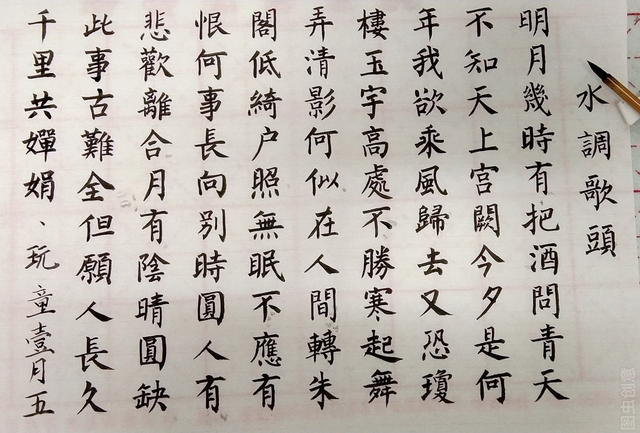 水調歌頭
明月幾時有把酒問青天
不知天上宮闕今夕是何
年我欲乘風歸去又恐瓊
樓玉宇高處不勝寒起舞
弄清影何似在人間轉朱
閣低綺户照無眠不應有
恨何事長向别時圓人有
悲歡離合月有陰晴圓缺
此事古難全但願人長久
千里共嬋娟、玩童壹月五
图虫创意